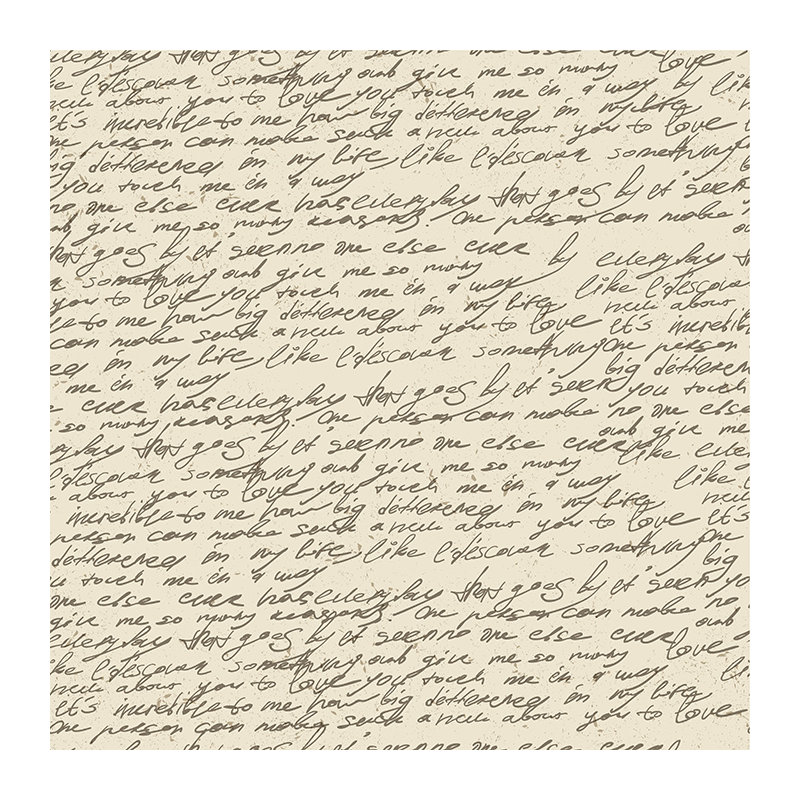 everyday that goes by it me so many reasons love
like I discover something and give me so many by like
new about you to love you touch me in a way by lik
it's incredible to me how big defference in my life
one person can make such a new about you to love
big defference in my life, like I discover something
you touch me in a way
no one else ever has everyday that goes by it seem
and give me so many reasons. One person can make
that goes by it seem no one else ever by everyday
something and give me so many
you to love you touch me in a way like I discover
to me how big defference in my life new about
can make such a new about you to love it's incredible
in my life, like I discover something One person
me in a way big defference
ever has everyday that goes by it seem you touch
so many reasons. One person can make no one else
everyday that goes by it seem no one else ever and give me
discover something and give me so many like every
about you to love you touch me in a way like
incredible to me how big defference in my life new
person can make such a new about you to love it's
defference in my life, like I discover something One
touch me in a way big
one else ever has everyday that goes by it seem yo
give me so many reasons. One person can make no
everyday that goes by it seem no one else ever and
like I discover something and give me so many love
new about you to love you touch me in a way li
it's incredible to me how big defference in my life
One person can make such a new about you to love